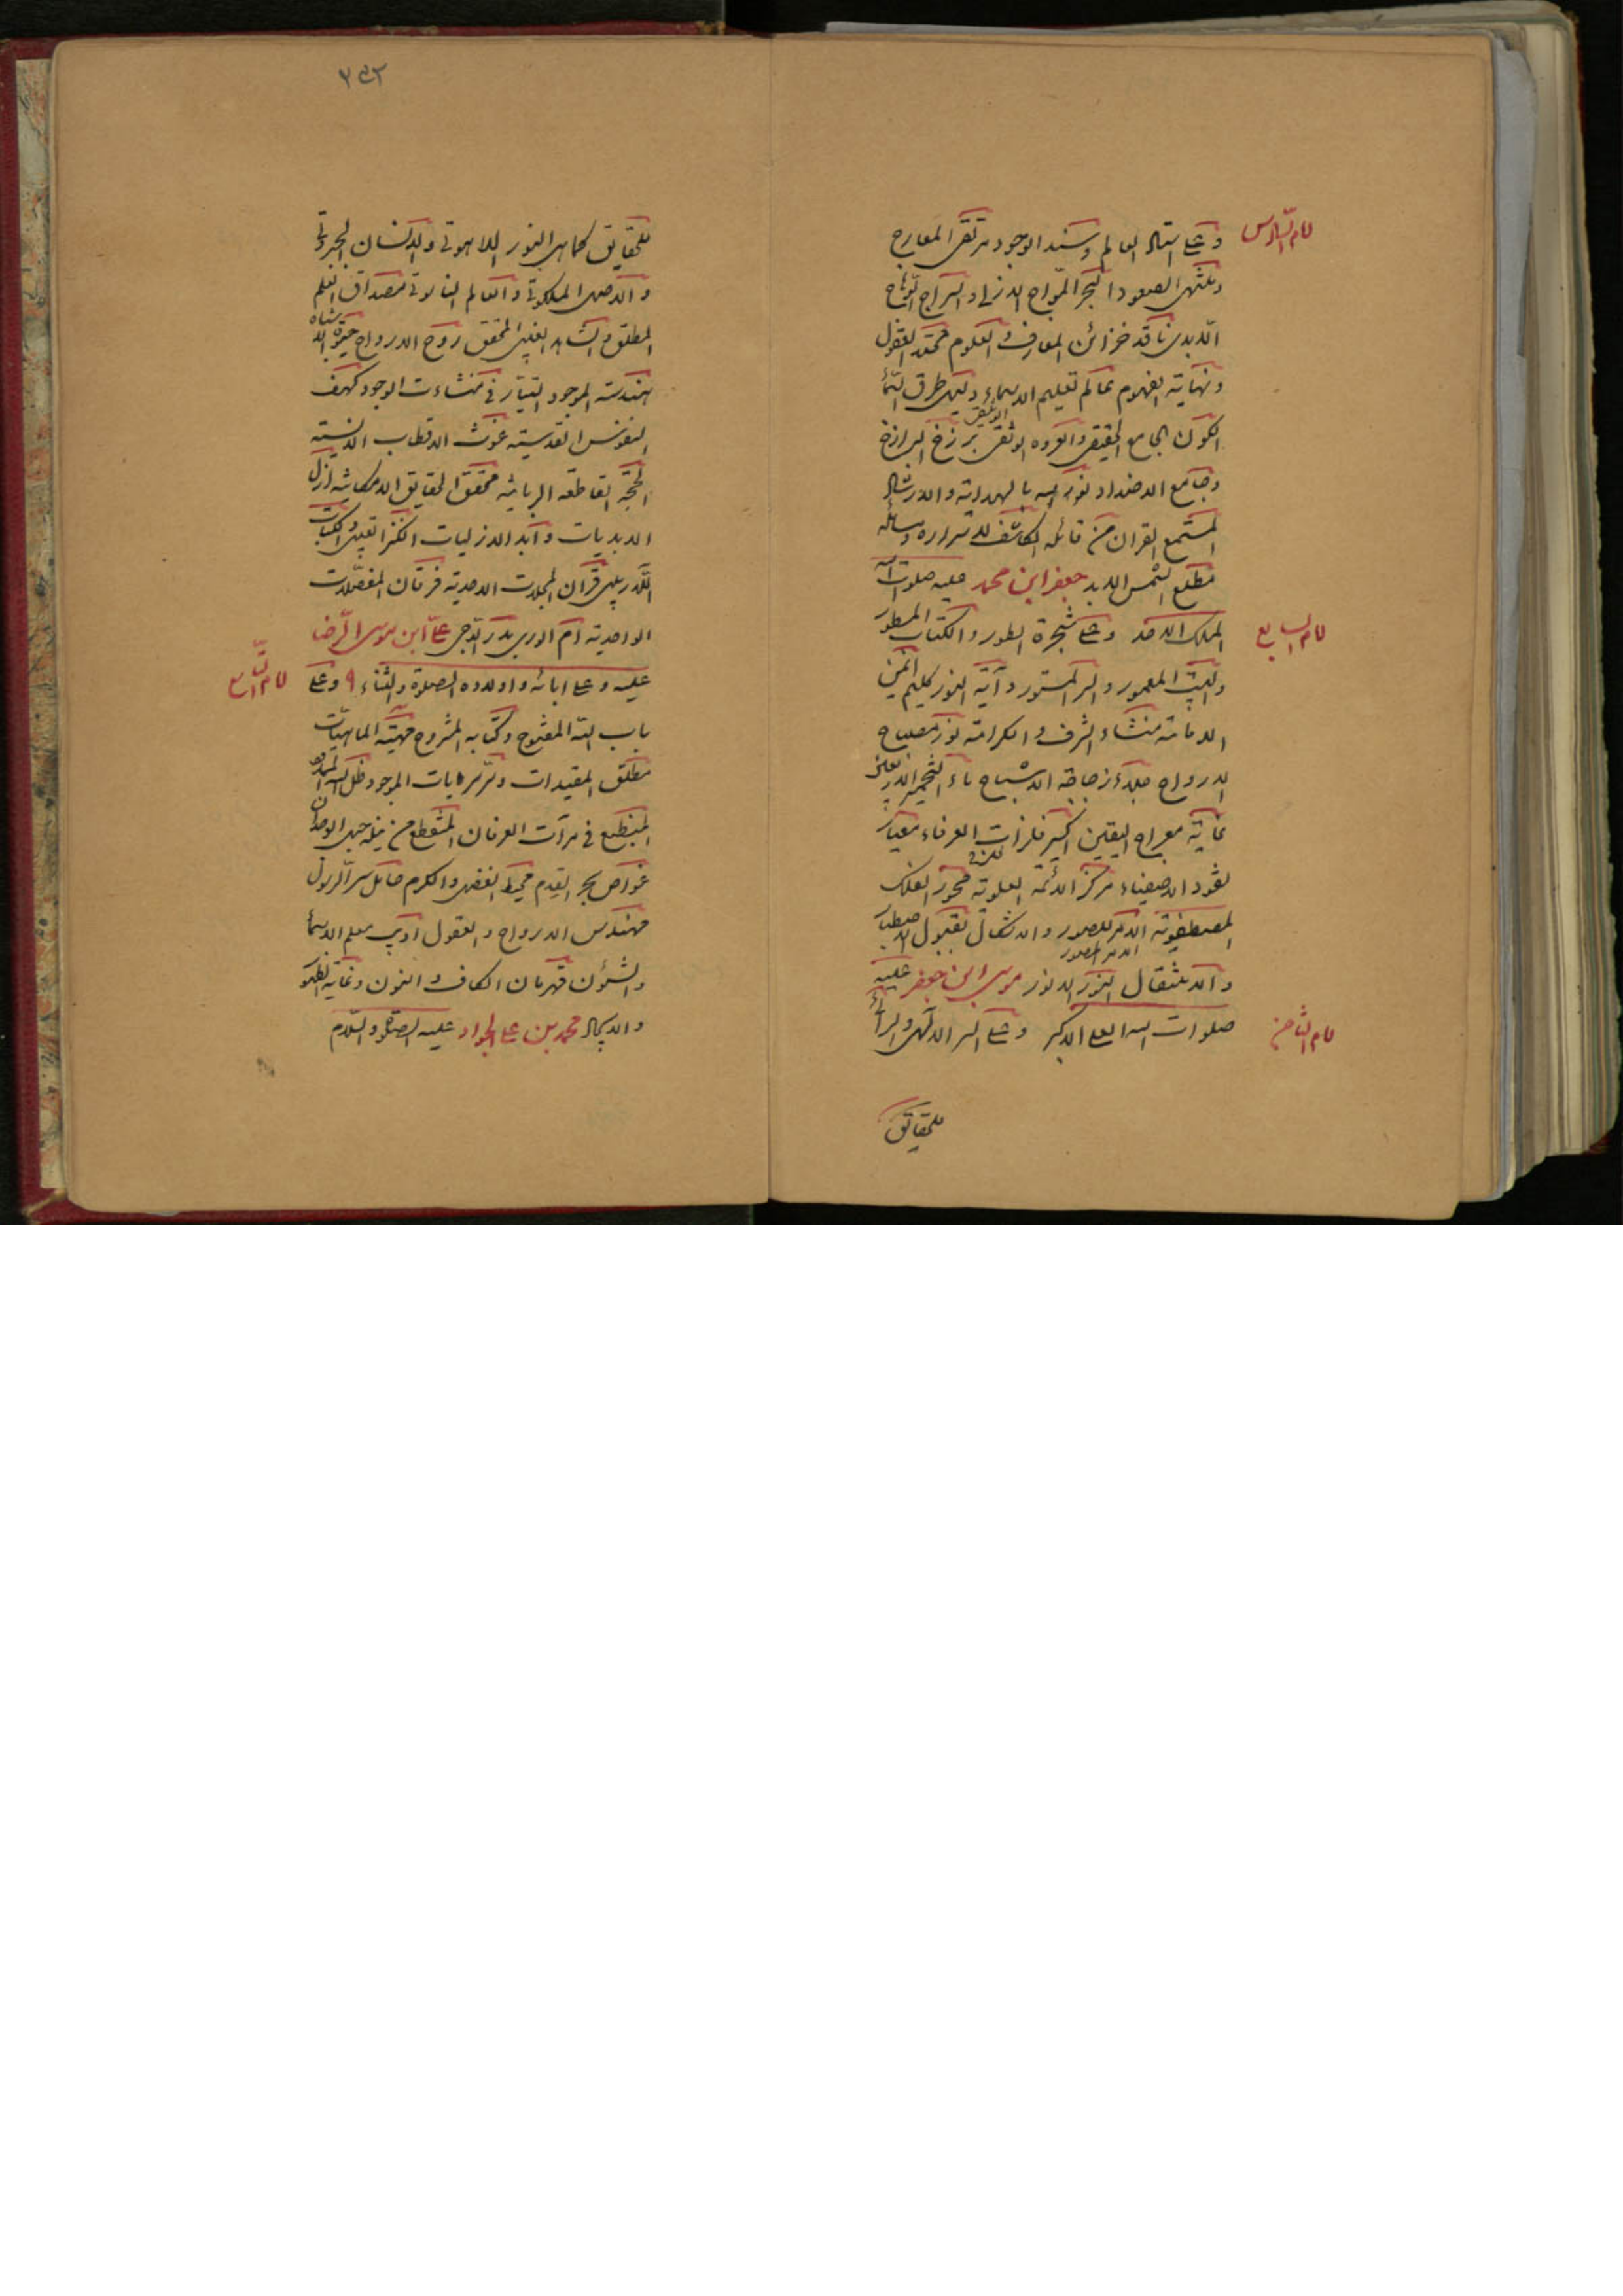 امام السادس
وعلی استاد العالم وسند الوجود مرتقی المعارج
ومنتهی الصعود البحر المواج الازلی والسراج الوهاج
الابدی ناقد خزائن المعارف والعلوم محتد العقول
ونهایة الفهوم عالم تعلیم الاسماء دلیل طرق السماء
الکون الجامع الحقیقی والعروه الوثقی الوثیقی برزخ البرازخ
وجامع الاضداد نور الله بالهدایة والارشاد
المستمع القران من قائله الکاشف لاسراره ومسائله
مطلع شمس الابد جعفر ابن محمد علیه صلوات الله
امام السابع
الملک الاحد وعلی شجرة الطور والکتاب المسطور
والبیت المعمور والسر المستور وآیة النور کلیم ایمن
الامامة منشاء الشرف والکرامة نور مصباح
الارواح جلاء زجاجة الاشباح ماء التخمیر الاربعینی
غایة معراج الیقین اکسیر فلزات العرفاء معیار
نقود الاصفیاء مرکز الائمة العلویة محور الفلک
المصطفویة الامر للصور والاشکال بقبول الاصطبار
الامر الصور
والانتقال النور الانور موسی ابن جعفر علیه
امام الثامن
صلوات الله العلی الاکبر وعلی السر الالهی والرائی
للحقائق
۳۵۲
للحقایق کماهی النور اللاهوتی والانسان الجبروتی
والاصل الملکوتی والعالم الناسوتی مصداق العلم
المطلق والشاهد الغیبی المحقق روح الارواح حیوة الاشباه
هندسة الموجود الطیار فی منشاءت الوجود کهف
النفوس القدسیة غوث الاقطاب الانسیة
الحجة القاطعة الربانیة محقق الحقایق الامکانیة ازل
الابدیات وآبد الازلیات الکنز الغیبی والکتاب
اللاریبی قرآن المجملات الاحدیة فرقان المفصلات
الواحدیة امام الوری بدر الدجی علی ابن موسی الرضا
امام التاسع
علیه وعلی ابائه واولاده الصلوة والثناء ۹ وعلی
باب الله المفتوح وکتابه المشروح مهیة الماهیات
مطلق المقیدات وسر سرایات الموجود ظل الله الممدود
المنطبع فی مرآت العرفان المنقطع من نیله حبل الوجدان
غواص بحر القدم محیط الفضل والکرم حامل سر الرسول
مهندس الارواح والعقول ادیب معلم الاسماء
والشؤن قهرمان الکاف والنون وغایة الظهور
والایجاد محمد بن علی الجواد علیه الصلوة والسلام